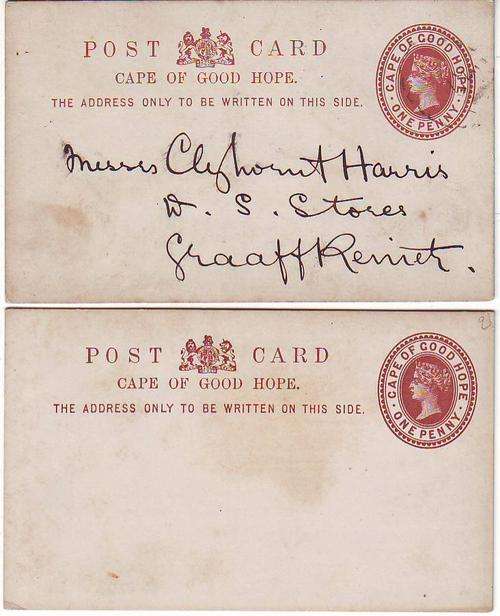 POST CARD
CAPE OF GOOD HOPE.
THE ADDRESS ONLY TO BE WRITTEN ON THIS SIDE.
CAPE OF GOOD HOPE
ONE PENNY
Messrs Harris
W. S. Stores
Graaff Reinet.
POST CARD
CAPE OF GOOD HOPE.
THE ADDRESS ONLY TO BE WRITTEN ON THIS SIDE.
CAPE OF GOOD HOPE
ONE PENNY